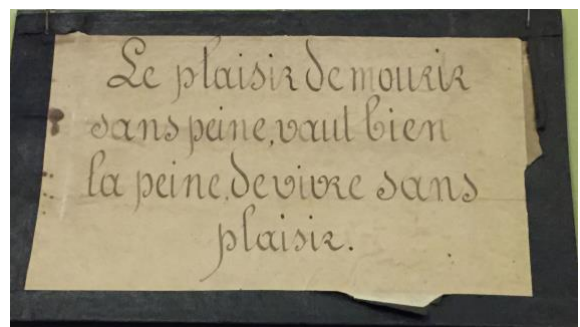 Le plaisir de mourir
sans peine, vaut bien
la peine, de vivre sans
plaisir.